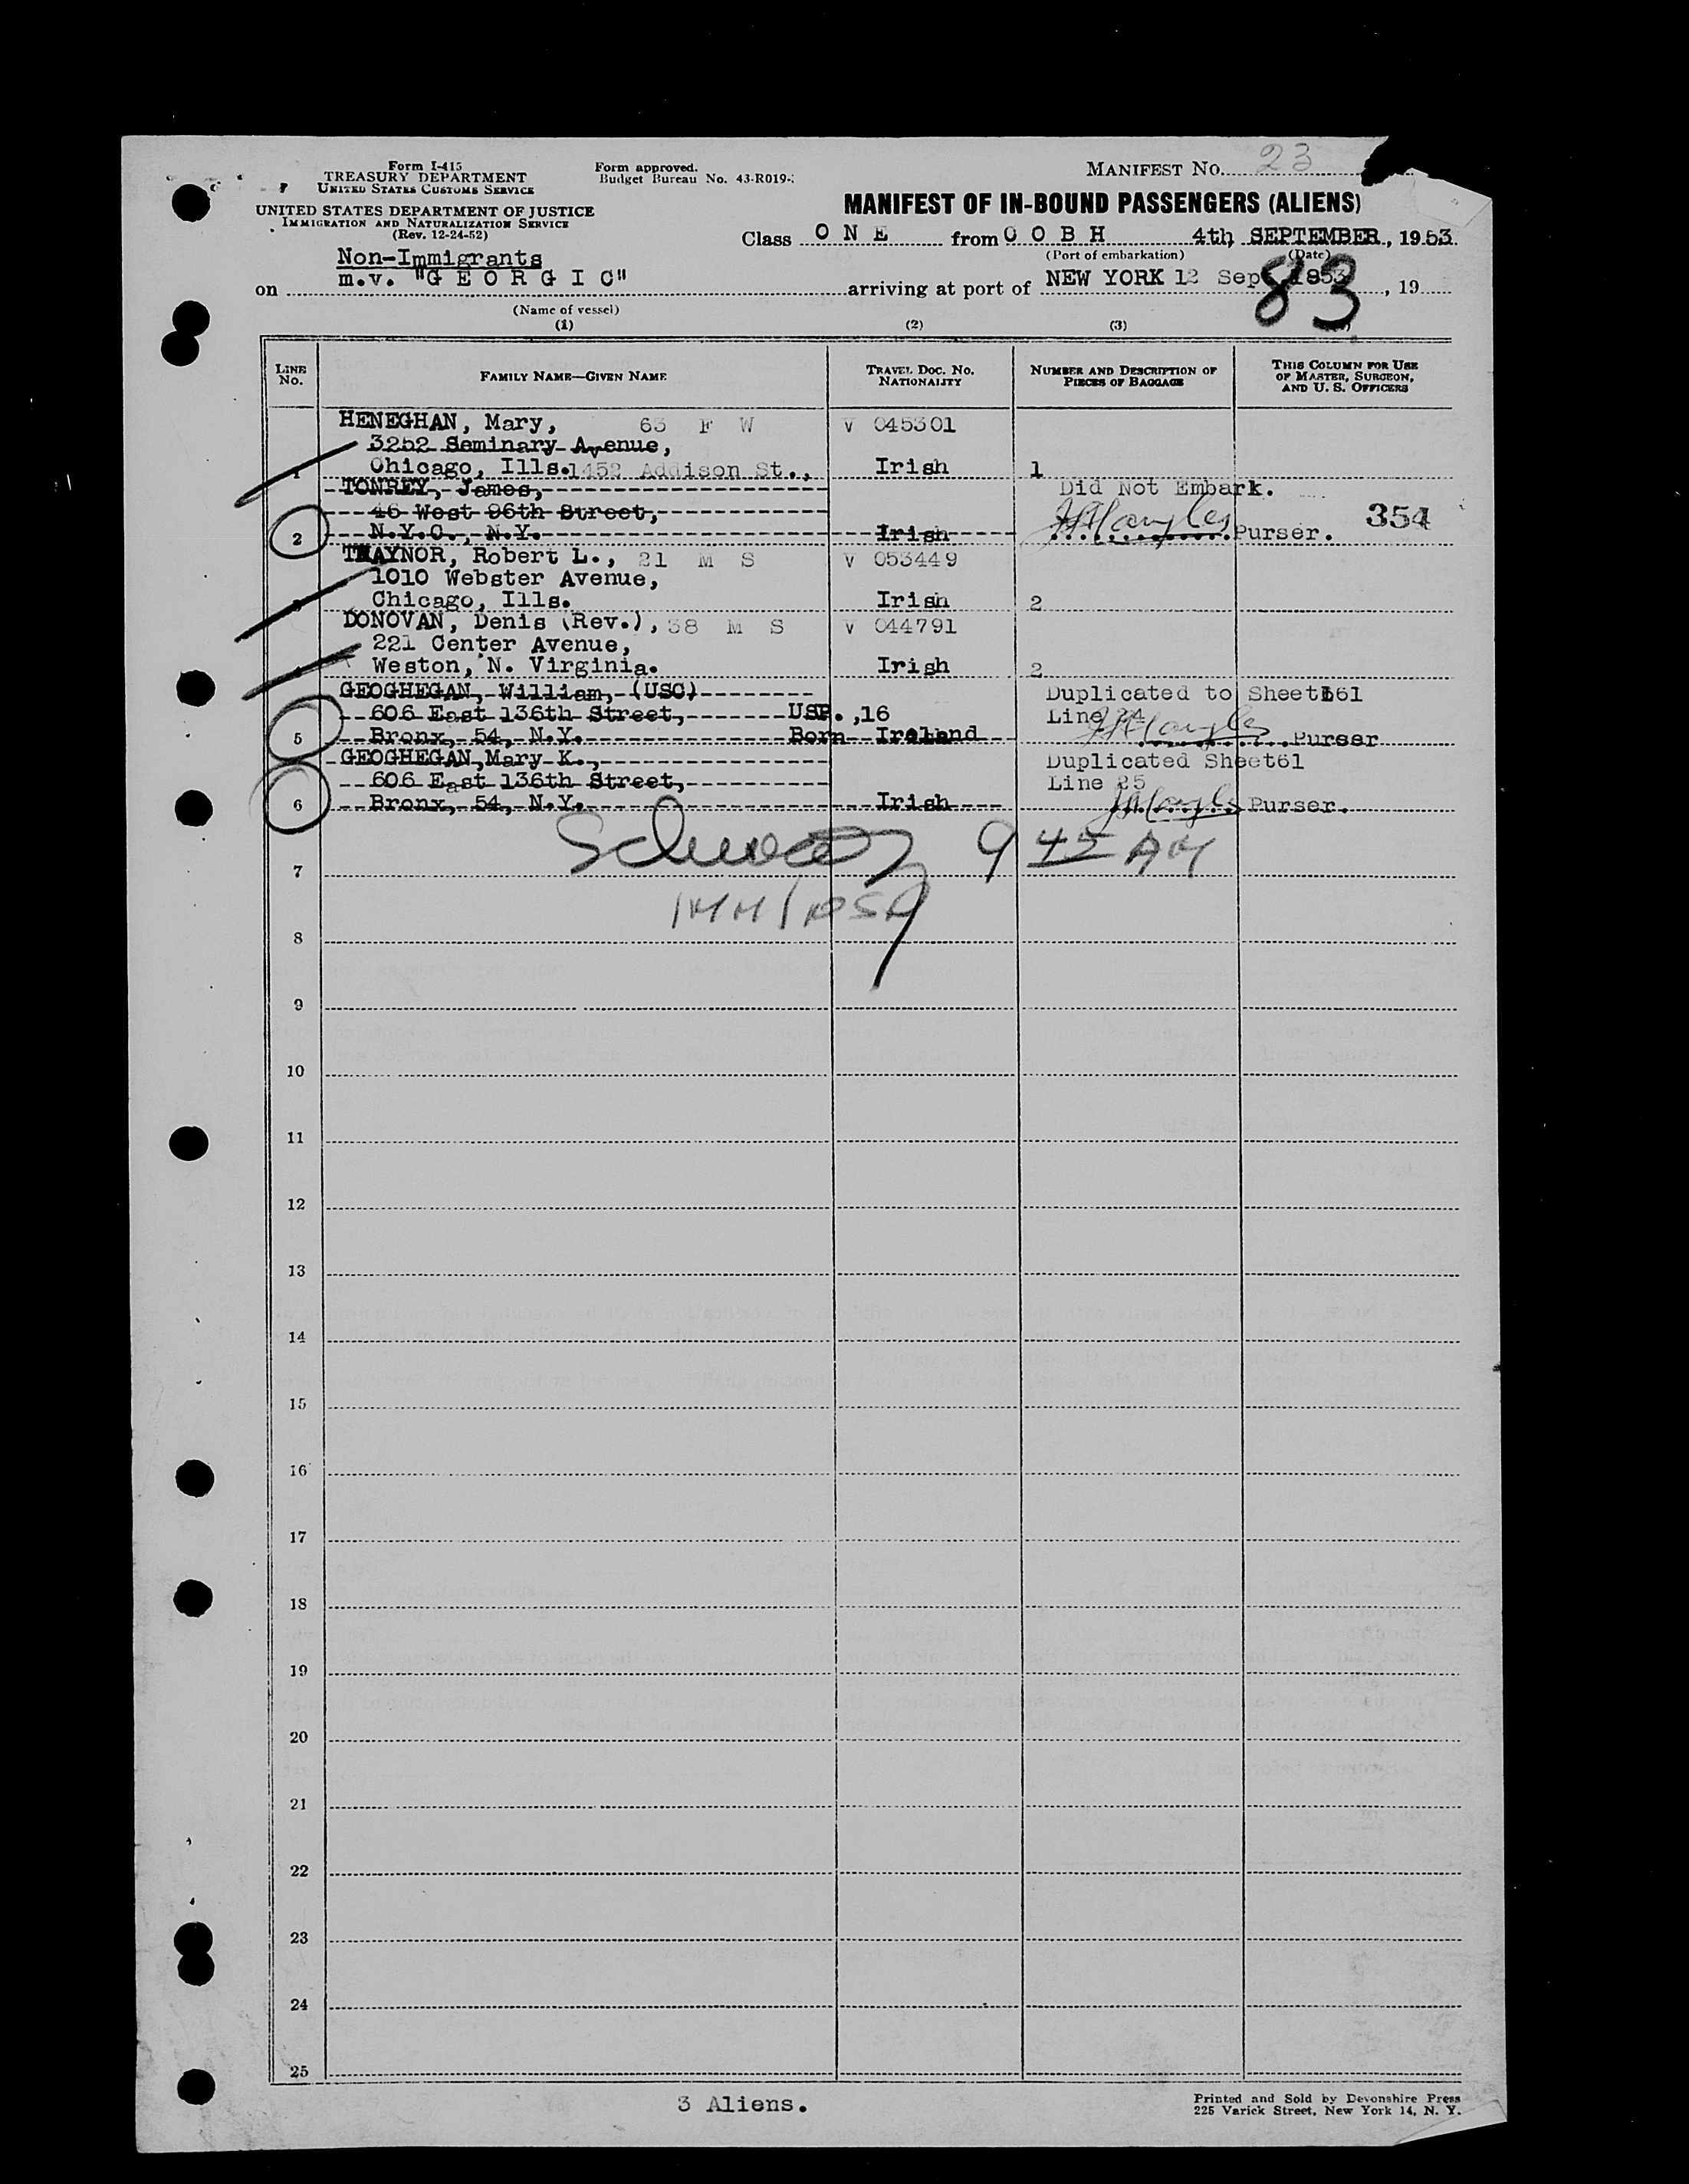 Form I-415
TREASURY DEPARTMENT
UNITED STATES CUSTOMS SERVICE
UNITED STATES DEPARTMENT OF JUSTICE
IMMIGRATION AND NATURALIZATION SERVICE
(Rev. 12-24-52)
Form approved.
Budget Bureau No. 43-R019-
MANIFEST NO. 23
MANIFEST OF IN-BOUND PASSENGERS (ALIENS)
Class O N E from C O B H 4th SEPTEMBER, 1953.
(Port of embarkation) (Date)
Non-Immigrants
on m.v. "G E O R G I C" arriving at port of NEW YORK 12 Sep 1953, 19
83
(Name of vessel)
(1) (2) (3)
LINE No. FAMILY NAME—GIVEN NAME TRAVEL DOC. NO. NATIONALITY NUMBER AND DESCRIPTION OF PIECES OF BAGGAGE THIS COLUMN FOR USE OF MASTER, SURGEON, AND U. S. OFFICERS
HENEGHAN, Mary, 63 F W V 045301
3252 Seminary Avenue,
1 Chicago, Ills. 1452 Addison St., Irish 1
TONREY, James, Did Not Embark.
46 West 96th Street, 354
2 N.Y.C., N.Y. Irish Purser.
TRAYNOR, Robert L., 21 M S V 053449
1010 Webster Avenue,
3 Chicago, Ills. Irish 2
DONOVAN, Denis (Rev.), 38 M S V 044791
221 Center Avenue,
4 Weston, N. Virginia. Irish 2
GEOGHEGAN, William, (USC) Duplicated to Sheet 161
606 East 136th Street, USP., 16 Line 24
5 Bronx, 54, N.Y. Born Ireland Purser
GEOGHEGAN, Mary K., Duplicated Sheet 61
606 East 136th Street, Line 25
6 Bronx, 54, N.Y. Irish Purser.
9 45 AM
7
8
9
10
11
12
13
14
15
16
17
18
19
20
21
22
23
24
25
3 Aliens.
Printed and Sold by Devonshire Press
225 Varick Street, New York 14, N. Y.